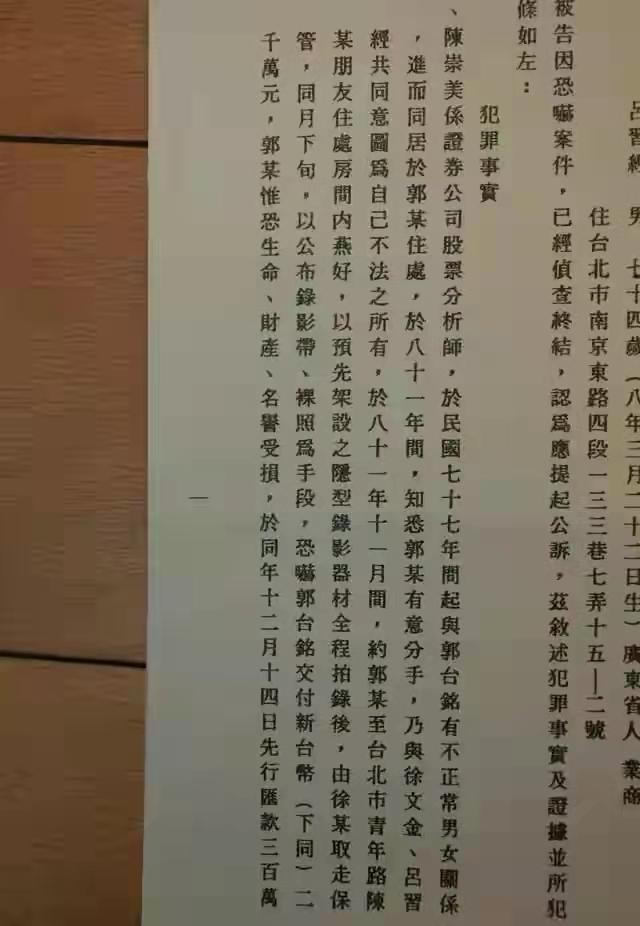 呂習經　男　七十四歲（八年三月二十二日生）廣東省人　業商
住台北市南京東路四段一三三巷七弄十五—二號
被告因恐嚇案件，已經偵查終結，認爲應提起公訴，茲敘述犯罪事實及證據並所犯
條如左：
犯罪事實
、陳崇美係證券公司股票分析師，於民國七十七年間起與郭台銘有不正常男女關係
，進而同居於郭某住處，於八十一年間，知悉郭某有意分手，乃與徐文金、呂習
經共同意圖爲自己不法之所有，於八十一年十一月間，約郭某至台北市青年路陳
某朋友住處房間内燕好，以預先架設之隱型錄影器材全程拍錄後，由徐某取走保
管，同月下旬，以公布錄影帶、裸照爲手段，恐嚇郭台銘交付新台幣（下同）二
千萬元，郭某惟恐生命、財產、名譽受損，於同年十二月十四日先行匯款三百萬
一